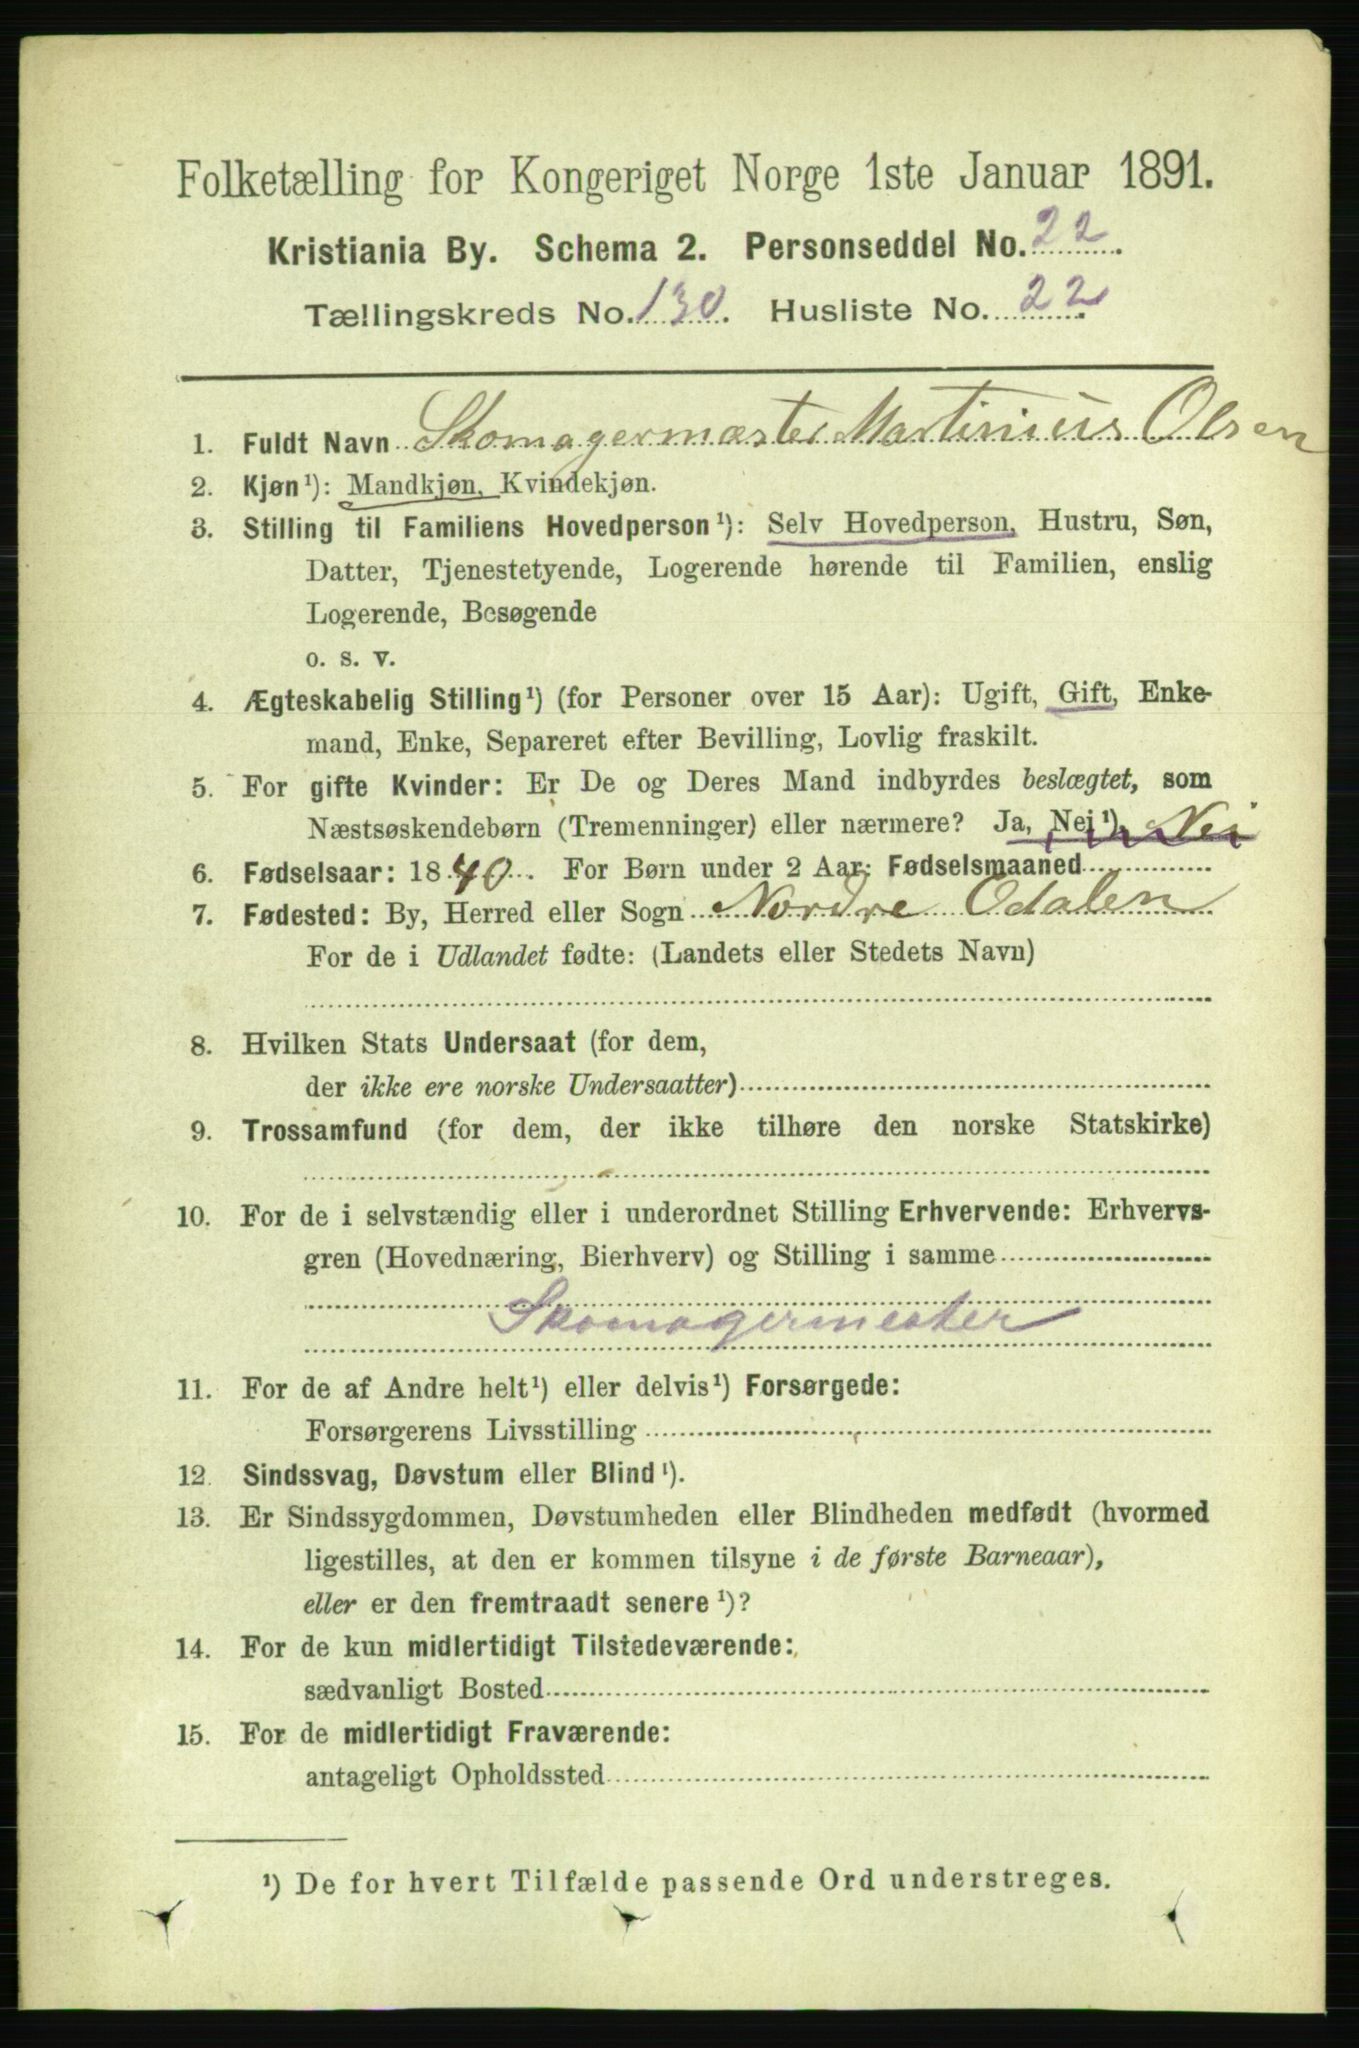 Folketælling for Kongeriget Norge 1ste Januar 1891.
Kristiania By. Schema 2. Personseddel No. 22.
Tællingskreds No. 130. Husliste No. 22.
1. Fuldt Navn Skomagermæster Martinius Olsen
2. Kjøn¹): Mandkjøn, Kvindekjøn.
3. Stilling til Familiens Hovedperson¹): Selv Hovedperson, Hustru, Søn,
Datter, Tjenestetyende, Logerende hørende til Familien, enslig
Logerende, Besøgende
o. s. v.
4. Ægteskabelig Stilling¹) (for Personer over 15 Aar): Ugift, Gift, Enke-
mand, Enke, Separeret efter Bevilling, Lovlig fraskilt.
5. For gifte Kvinder: Er De og Deres Mand indbyrdes beslægtet, som
Næstsøskendebørn (Tremenninger) eller nærmere? Ja, Nei¹), Nei
6. Fødselsaar: 1840. For Børn under 2 Aar: Fødselsmaaned
7. Fødested: By, Herred eller Sogn Nordre Odalen
For de i Udlandet fødte: (Landets eller Stedets Navn)
8. Hvilken Stats Undersaat (for dem,
der ikke ere norske Undersaatter)
9. Trossamfund (for dem, der ikke tilhøre den norske Statskirke)
10. For de i selvstændig eller i underordnet Stilling Erhvervende: Erhvervs-
gren (Hovednæring, Bierhverv) og Stilling i samme
Skomagermester
11. For de af Andre helt¹) eller delvis¹) Forsørgede:
Forsørgerens Livsstilling
12. Sindssvag, Døvstum eller Blind¹).
13. Er Sindssygdommen, Døvstumheden eller Blindheden medfødt (hvormed
ligestilles, at den er kommen tilsyne i de første Barneaar),
eller er den fremtraadt senere¹)?
14. For de kun midlertidigt Tilstedeværende:
sædvanligt Bosted
15. For de midlertidigt Fraværende:
antageligt Opholdssted
¹) De for hvert Tilfælde passende Ord understreges.